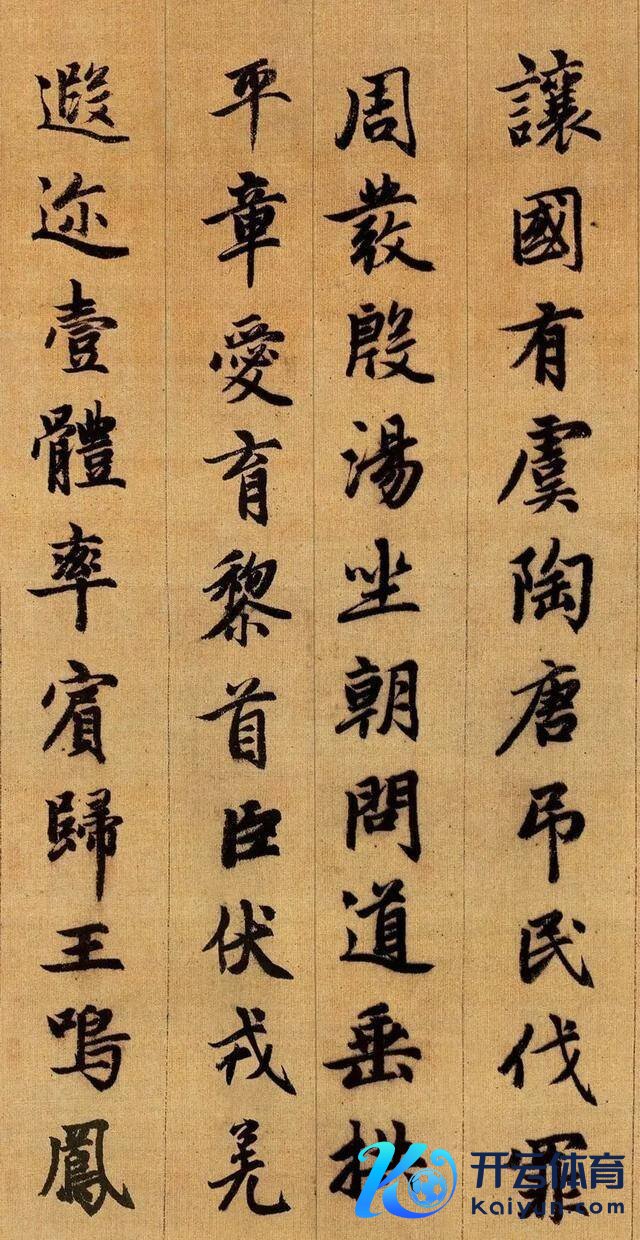 讓國有虞陶唐吊民伐罪
周發殷湯坐朝問道垂拱
平章愛育黎首臣伏戎羌
遐迩壹體率賓歸王鳴鳳
开云体育
kaiyun.com